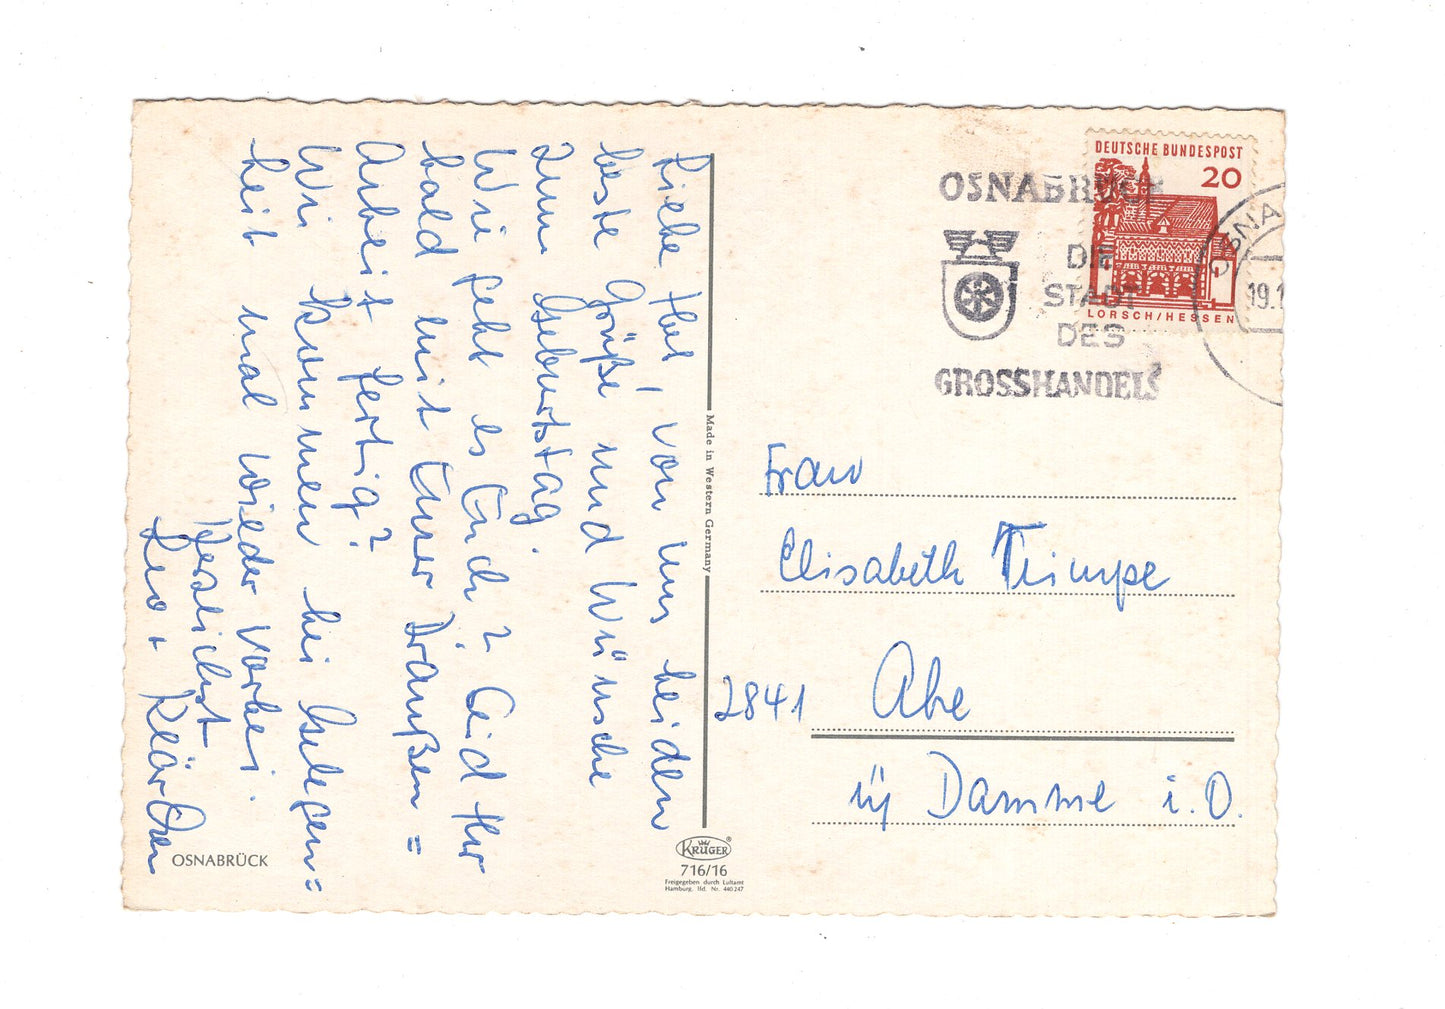 Liebe Ihr, von uns beiden
beste Grüße und Wünsche
zum Geburtstag.
Wie geht es Euch? Seid Ihr
bald mit Eurer Draußen=
Arbeit fertig?
Wir kommen bei Gelegen=
heit mal wieder vorbei.
Herzlichst
Leo + Klärchen
OSNABRÜCK
Made in Western Germany
KRÜGER
716/16
Freigegeben durch Luftamt
Hamburg, lfd. Nr. 440 247
OSNABRÜCK
DIE
STADT
DES
GROSSHANDELS
DEUTSCHE BUNDESPOST
20
LORSCH/HESSEN
OSNA
19.1
Frau
Elisabeth Trimpe
2841 Ahe
üb Damme i. O.